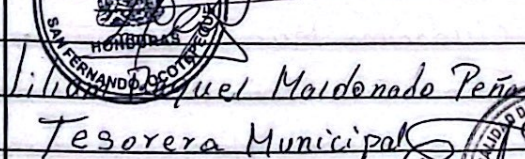 HONDURAS
SAN FERNANDO, OCOTEPEQUE
Maldonado Peña
Tesorera Municipal